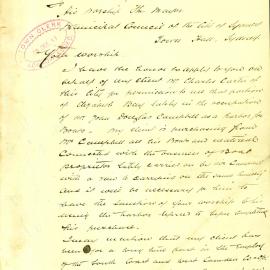 His Worship The Mayor
Municipal Council of the City of Sydney
Town Hall, Sydney.
Your Worship
I have the honor to apply to you on
behalf of my client Mr Charles Carter of
this City for permission to use that portion
of Bay lately in the occupation
of Mr John Douglas Campbell as a harbor for
Boats. My client is purchasing from
Mr Campbell all his Boats and material
connected with the business of Boat
proprietor lately carried on by Mr Campbell
with a view to carrying on the same himself
and it will be necessary for him to
have the sanction of your worship to his
using the harbor before
this purchase.
I may mention that my client has
been for a long time past in the employ
of the South Coast and West Camden Co-op